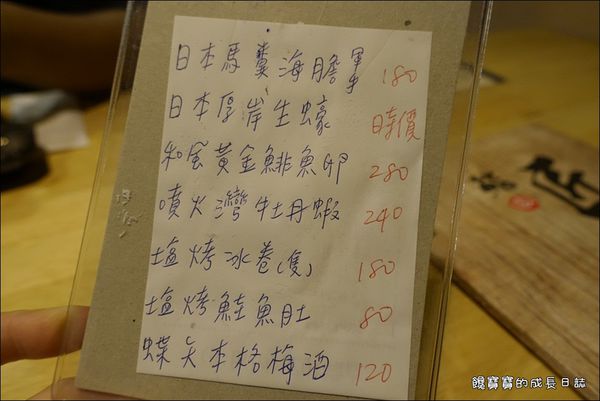 日本馬糞海膽軍手 180
日本厚岸生蠔 時價
和風黃金鯡魚卵 280
噴火灣牡丹蝦 240
塩烤冰卷(隻) 180
塩烤鮭魚肚 80
蝶矢本格梅酒 120
饞寶寶的成長日誌